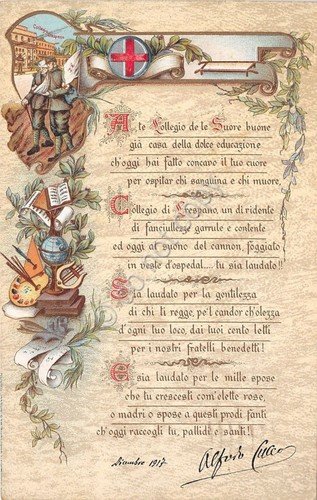 A te Collegio de le Suore buone
già casa della dolce educazione
ch'oggi hai fatto concavo il tuo cuore
per ospitar chi sanguina e chi muore,
Collegio di Crespano, un dì ridente
di fanciullezze garrule e contente
ed oggi al suono del cannon, foggiato
in veste d'ospedal.... tu sia laudato!!
Sia laudato per la gentilezza
di chi ti regge, pe'l candor ch'olezza
d'ogni tuo loco, dai tuoi cento letti
per i nostri fratelli benedetti!
E sia laudato per le mille spose
che tu crescesti com'elette rose,
o madri o spose a questi prodi fanti
ch'oggi raccogli tu, pallidi e santi!!
dicembre 1917
Alfredo